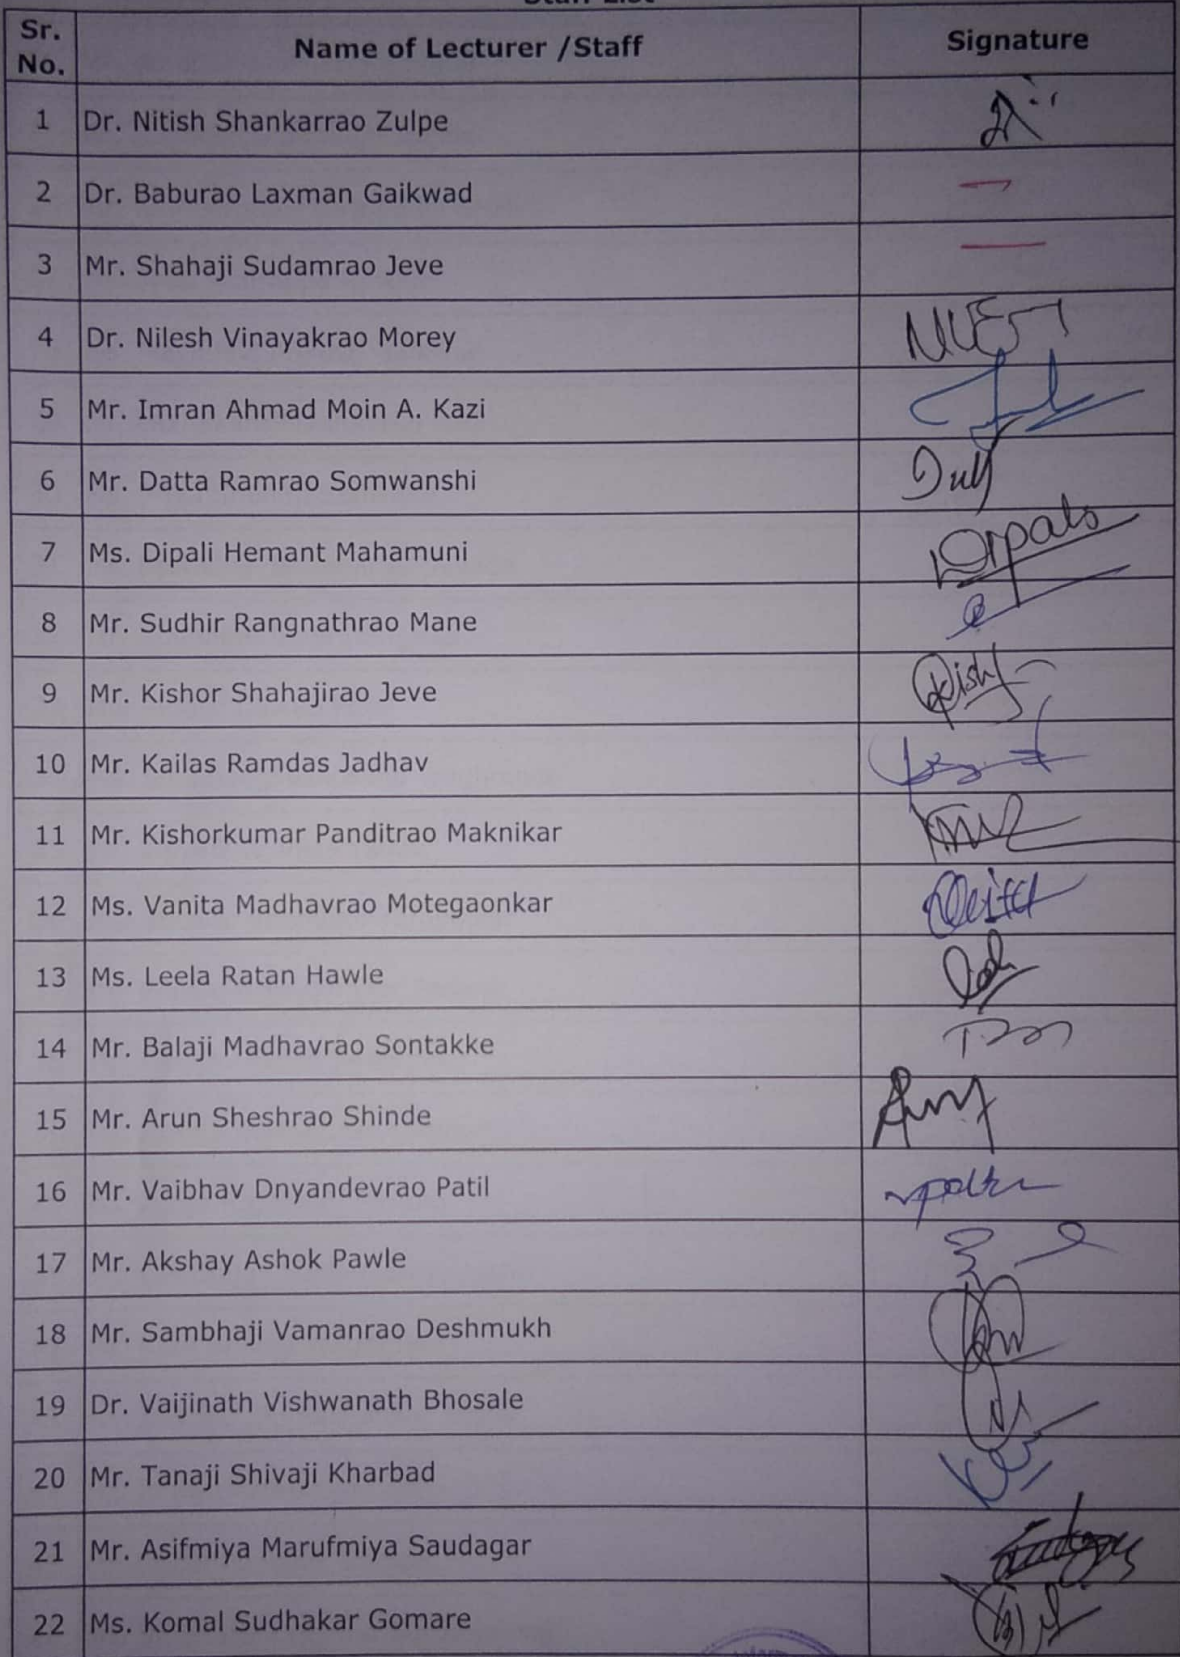 Staff List
Sr. No. Name of Lecturer /Staff Signature
1 Dr. Nitish Shankarrao Zulpe
2 Dr. Baburao Laxman Gaikwad
3 Mr. Shahaji Sudamrao Jeve
4 Dr. Nilesh Vinayakrao Morey
5 Mr. Imran Ahmad Moin A. Kazi
6 Mr. Datta Ramrao Somwanshi
7 Ms. Dipali Hemant Mahamuni
8 Mr. Sudhir Rangnathrao Mane
9 Mr. Kishor Shahajirao Jeve
10 Mr. Kailas Ramdas Jadhav
11 Mr. Kishorkumar Panditrao Maknikar
12 Ms. Vanita Madhavrao Motegaonkar
13 Ms. Leela Ratan Hawle
14 Mr. Balaji Madhavrao Sontakke
15 Mr. Arun Sheshrao Shinde
16 Mr. Vaibhav Dnyandevrao Patil
17 Mr. Akshay Ashok Pawle
18 Mr. Sambhaji Vamanrao Deshmukh
19 Dr. Vaijinath Vishwanath Bhosale
20 Mr. Tanaji Shivaji Kharbad
21 Mr. Asifmiya Marufmiya Saudagar
22 Ms. Komal Sudhakar Gomare